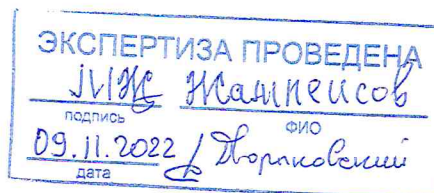 ЭКСПЕРТИЗА ПРОВЕДЕНА
Жампеисов
подпись ФИО
09.11.2022 Дворяковский
дата